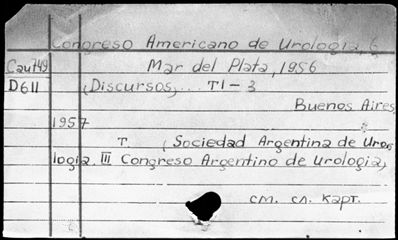 Congreso Americano de Urologia, 6,
Cau749 Mar del Plata, 1956
D611 (Discursos)... T1-3
Buenos Aires,
1957
T. (Sociedad Argentina de Uro-
logia. III Congreso Argentino de Urologia)
см. сл. карт.